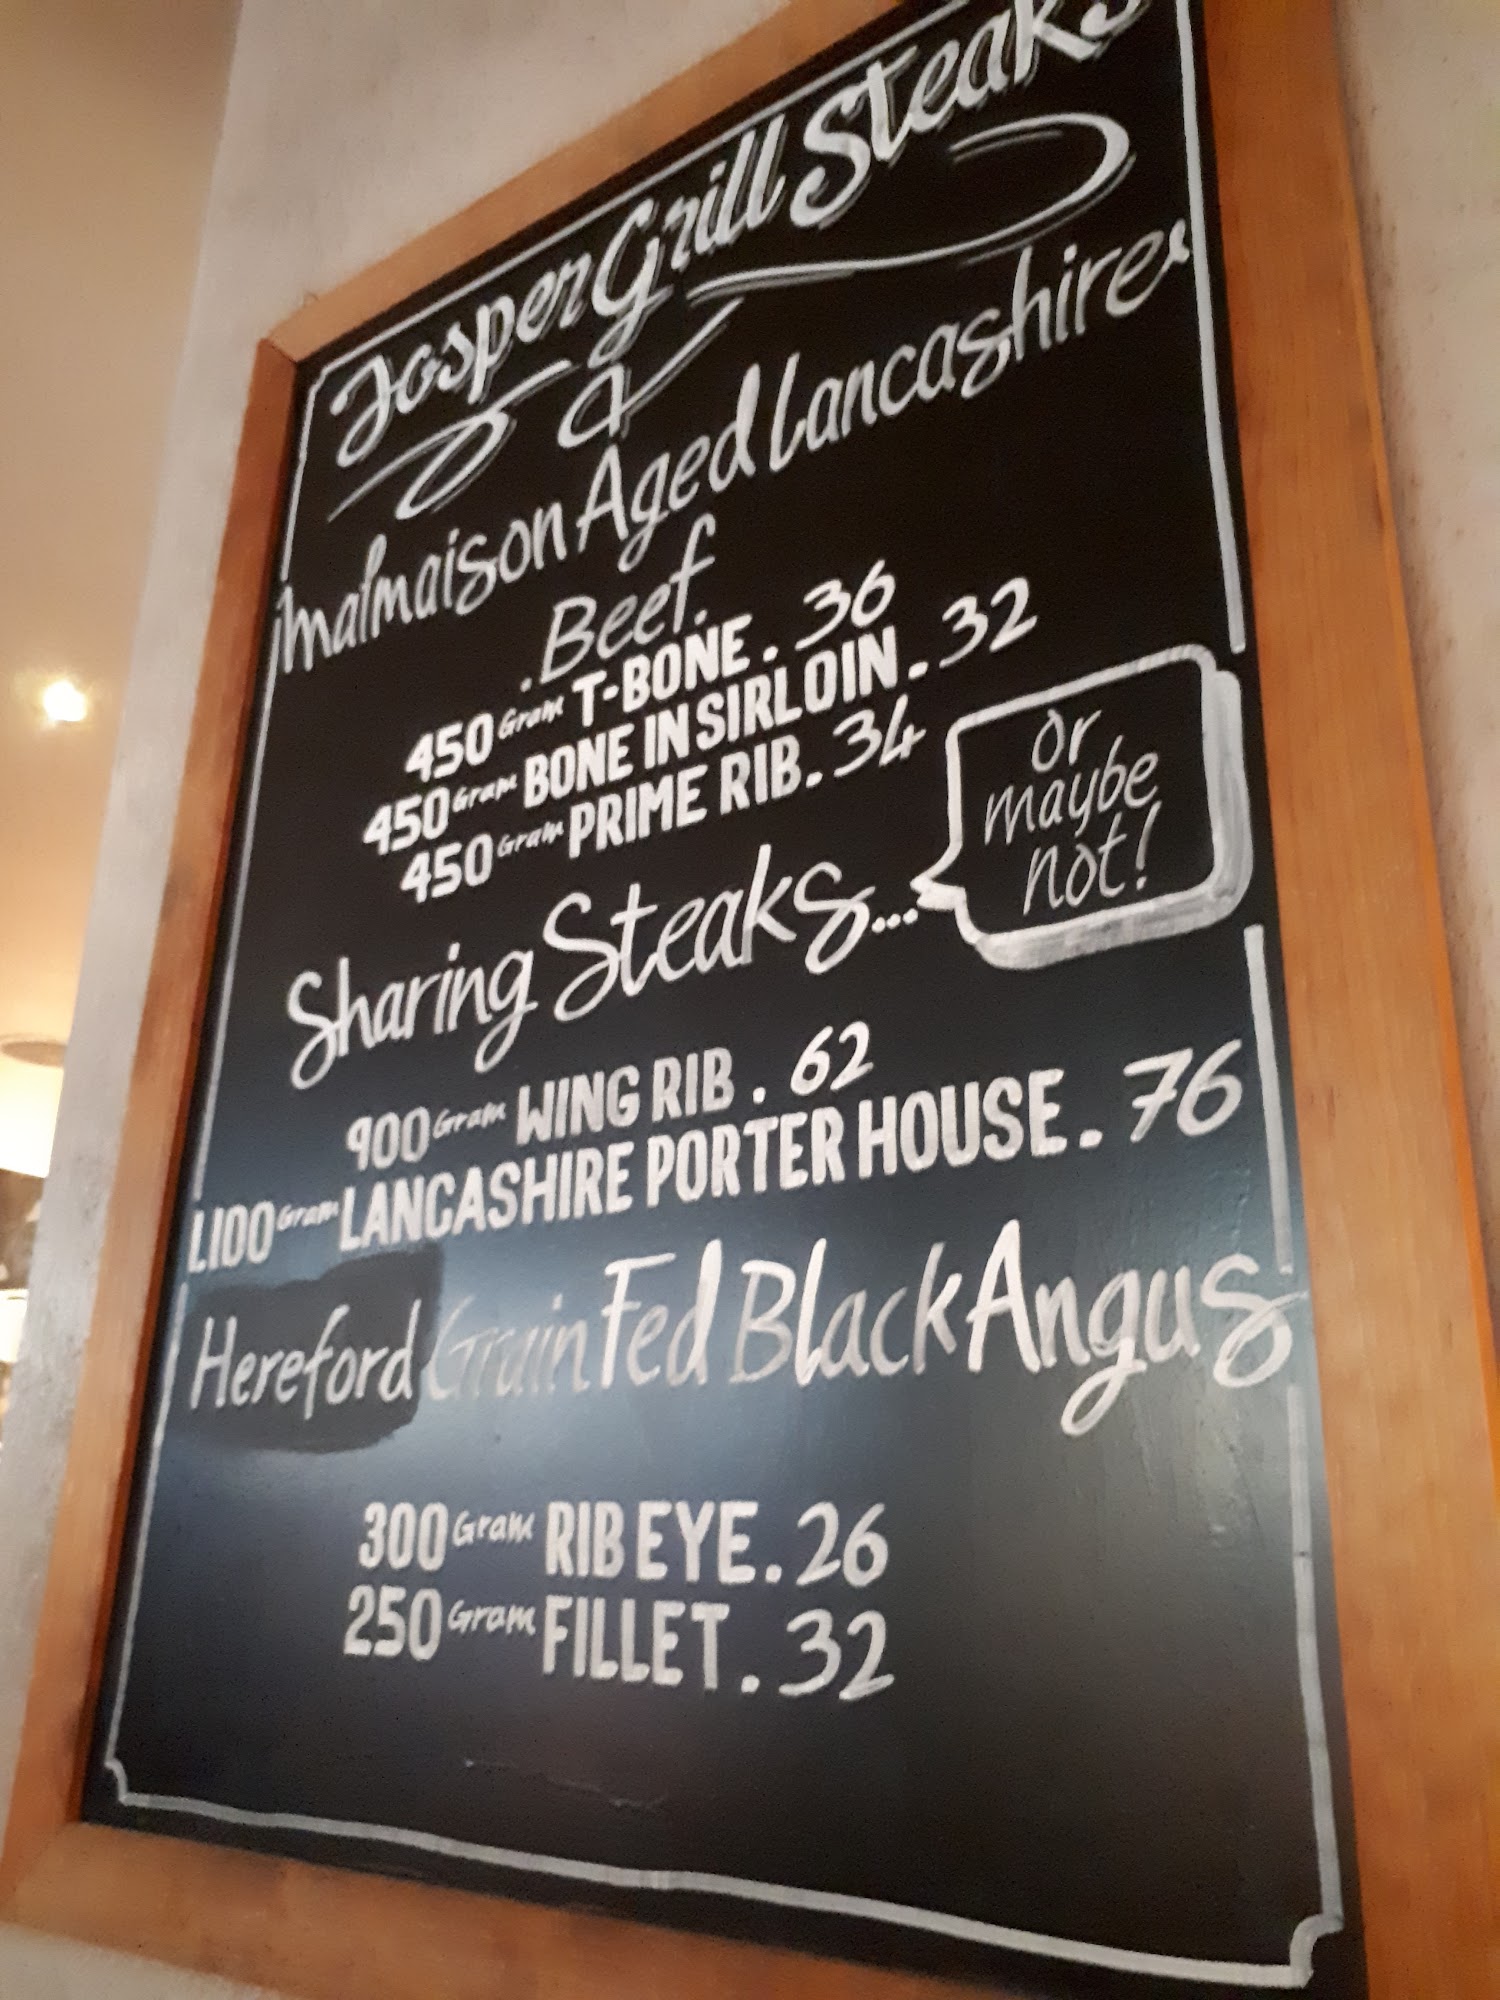 Josper Grill Steaks
Malmaison Aged Lancashire
.Beef.
450 Gram T-BONE. 36
450 Gram BONE IN SIRLOIN. 32
450 Gram PRIME RIB. 34
Sharing Steaks...
Or
maybe
not!
900 Gram WING RIB. 62
LIDO Gram LANCASHIRE PORTER HOUSE. 76
Hereford Grain Fed Black Angus
300 Gram RIB EYE. 26
250 Gram FILLET. 32